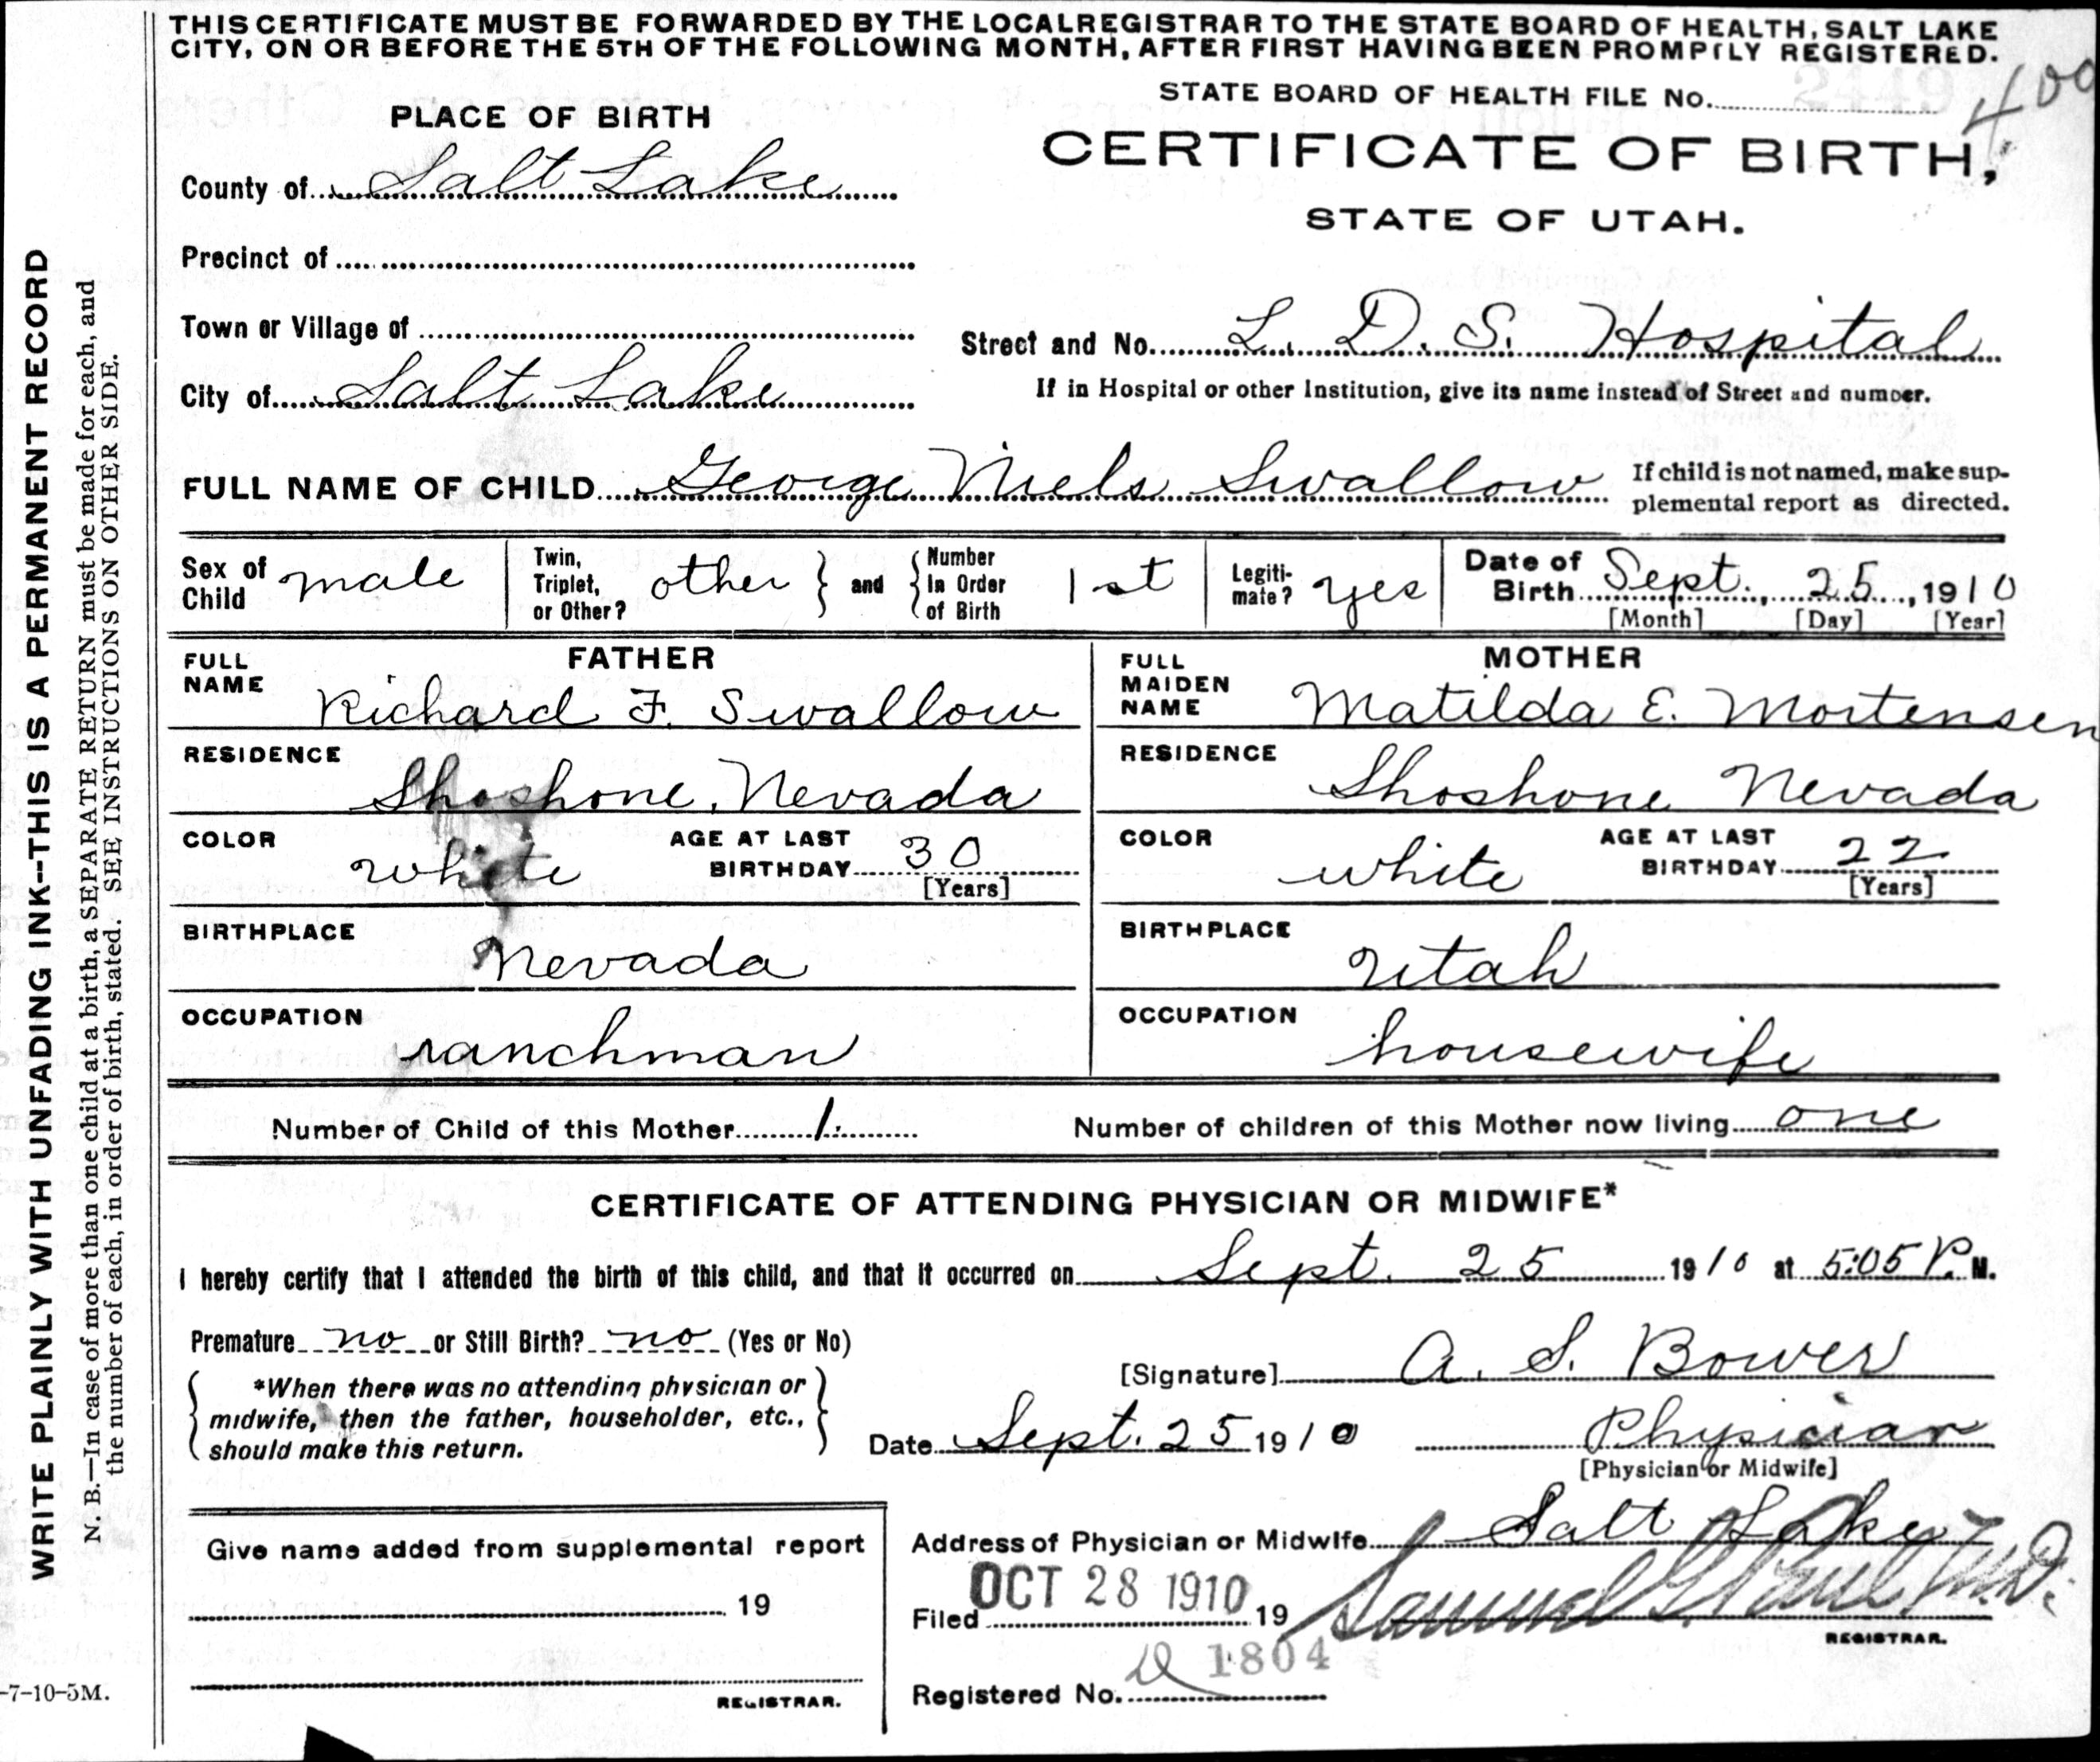 THIS CERTIFICATE MUST BE FORWARDED BY THE LOCAL REGISTRAR TO THE STATE BOARD OF HEALTH, SALT LAKE
CITY, ON OR BEFORE THE 5TH OF THE FOLLOWING MONTH, AFTER FIRST HAVING BEEN PROMPTLY REGISTERED.
STATE BOARD OF HEALTH FILE No. 400
PLACE OF BIRTH
CERTIFICATE OF BIRTH,
STATE OF UTAH.
County of Salt Lake
Precinct of
Town or Village of
Street and No. L. D. S. Hospital
City of Salt Lake
If in Hospital or other Institution, give its name instead of Street and number.
FULL NAME OF CHILD George Niels Swallow
If child is not named, make sup-
plemental report as directed.
Sex of Child male
Twin, Triplet, or Other? other } and { Number In Order of Birth 1st
Legiti-mate? yes
Date of Birth Sept. 25, 1910
[Month] [Day] [Year]
FATHER
FULL NAME Richard F. Swallow
RESIDENCE
Shoshone, Nevada
COLOR white
AGE AT LAST BIRTHDAY 30
[Years]
BIRTHPLACE
Nevada
OCCUPATION
ranchman
MOTHER
FULL MAIDEN NAME Matilda E. Mortensen
RESIDENCE
Shoshone Nevada
COLOR white
AGE AT LAST BIRTHDAY 22
[Years]
BIRTHPLACE
Utah
OCCUPATION
housewife
Number of Child of this Mother 1.
Number of children of this Mother now living one
CERTIFICATE OF ATTENDING PHYSICIAN OR MIDWIFE*
I hereby certify that I attended the birth of this child, and that it occurred on Sept. 25 1910 at 5:05 P. M.
Premature no or Still Birth? no (Yes or No)
[Signature] A. S. Bower
*When there was no attending physician or
midwife, then the father, householder, etc.,
should make this return.
Date Sept. 25 1910
Physician
[Physician or Midwife]
Give name added from supplemental report
19
REGISTRAR.
Address of Physician or Midwife Salt Lake
Filed OCT 28 1910 19
Samuel G. Paul, M.D.
REGISTRAR.
Registered No. 1804
WRITE PLAINLY WITH UNFADING INK--THIS IS A PERMANENT RECORD
N. B.—In case of more than one child at a birth, a SEPARATE RETURN must be made for each, and
the number of each, in order of birth, stated. SEE INSTRUCTIONS ON OTHER SIDE.
-7-10-5M.